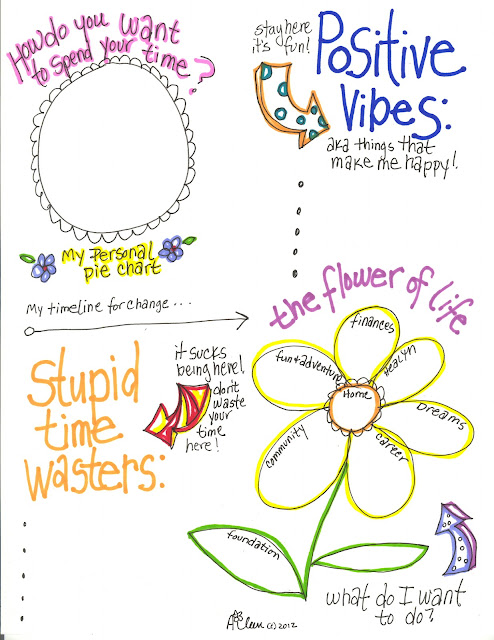 How do you want
to spend your time?
My Personal
pie chart
My timeline for change...
stay here
it's fun!
Positive
Vibes:
aka things that
make me happy!
Stupid
time
wasters:
it sucks
being here!
don't
waste
your
time
here!
the flower of life
finances
Health
Dreams
career
community
fun & adventure
Home
foundation
what do I want
to do?
(c) 2012